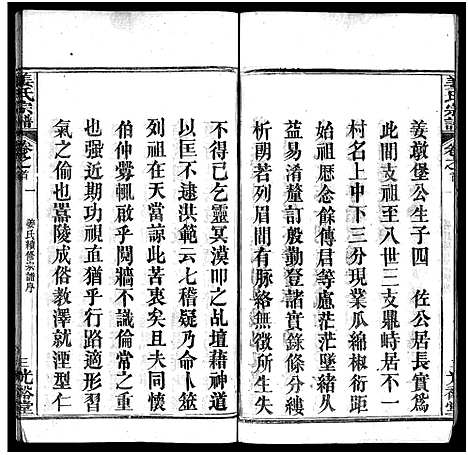 姜氏宗譜
卷之首
姜墩堡公生子四　佐公居長實爲
此間支祖至八世三支鼎峙居不一
村名上中下三分現業瓜綿代遠
始祖歷念餘傳君等慮茫茫墜緒
益易淆釐訂殷勤登諸實錄條分縷
析朗若列眉有脈絡無徵所生失
不得已乞靈冥漠叩之乩壇藉神道
以匡不逮洪範云七稽疑命卜筮
列祖在天當諒此苦衷矣且夫同懷
伯仲釁輒啟乎鬩牆不識倫常之重
也强近期功視直猶乎行路適衷
氣之偷也嚣陵成俗教澤就湮型仁
姜氏宗譜
卷之首
一
姜氏續修宗譜序
三光裕堂